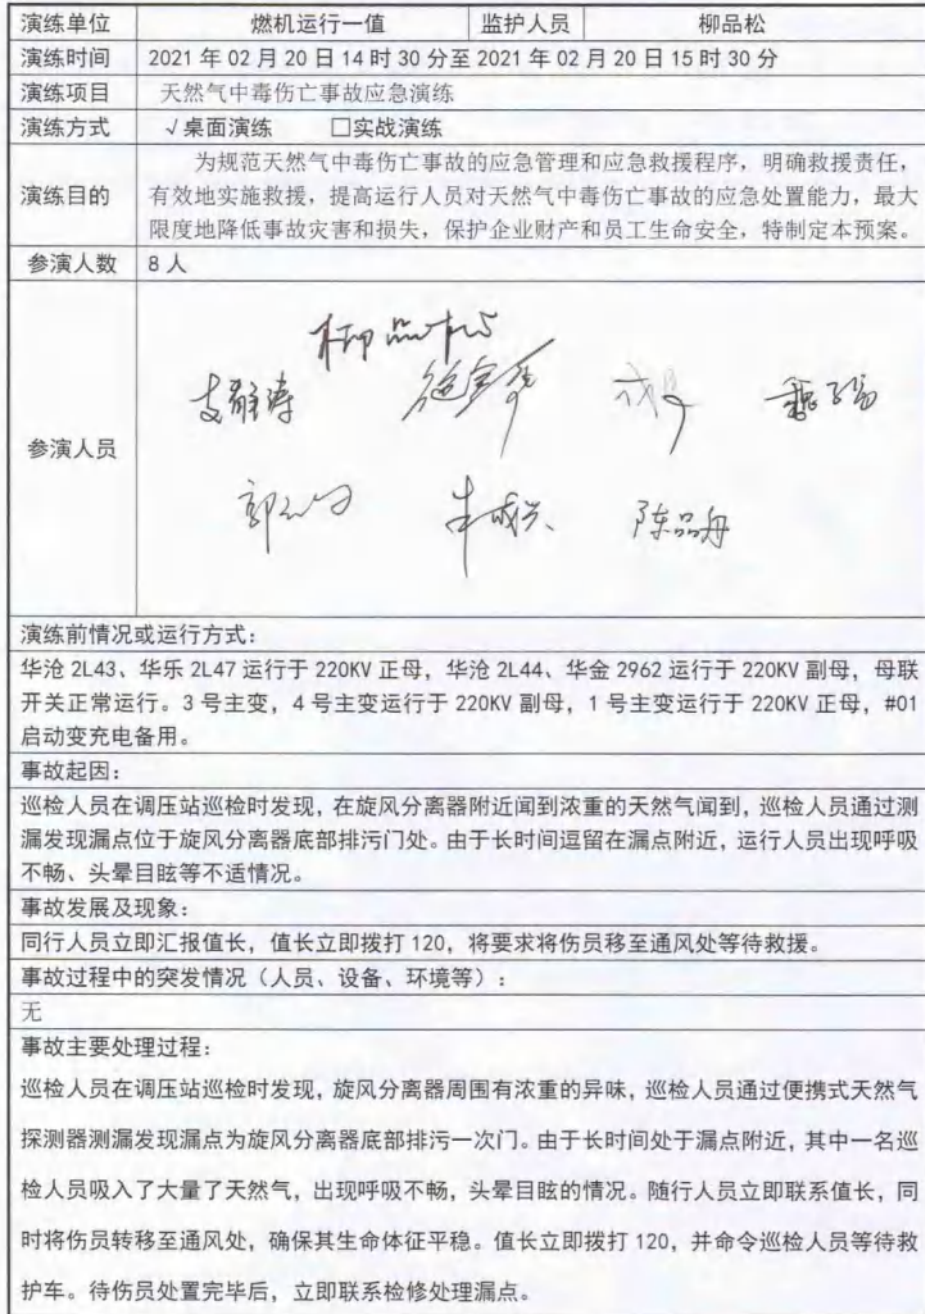 演练单位 燃机运行一值 监护人员 柳品松
演练时间 2021 年 02 月 20 日 14 时 30 分至 2021 年 02 月 20 日 15 时 30 分
演练项目 天然气中毒伤亡事故应急演练
演练方式 √桌面演练 □实战演练
演练目的 为规范天然气中毒伤亡事故的应急管理和应急救援程序，明确救援责任，
有效地实施救援，提高运行人员对天然气中毒伤亡事故的应急处置能力，最大
限度地降低事故灾害和损失，保护企业财产和员工生命安全，特制定本预案。
参演人数 8 人
参演人员
柳品松
陈品舟
演练前情况或运行方式：
华沧 2L43、华乐 2L47 运行于 220KV 正母，华沧 2L44、华金 2962 运行于 220KV 副母，母联
开关正常运行。3 号主变，4 号主变运行于 220KV 副母，1 号主变运行于 220KV 正母，#01
启动变充电备用。
事故起因：
巡检人员在调压站巡检时发现，在旋风分离器附近闻到浓重的天然气闻到，巡检人员通过测
漏发现漏点位于旋风分离器底部排污门处。由于长时间逗留在漏点附近，运行人员出现呼吸
不畅、头晕目眩等不适情况。
事故发展及现象：
同行人员立即汇报值长，值长立即拨打 120，将要求将伤员移至通风处等待救援。
事故过程中的突发情况（人员、设备、环境等）：
无
事故主要处理过程：
巡检人员在调压站巡检时发现，旋风分离器周围有浓重的异味，巡检人员通过便携式天然气
探测器测漏发现漏点为旋风分离器底部排污一次门。由于长时间处于漏点附近，其中一名巡
检人员吸入了大量了天然气，出现呼吸不畅，头晕目眩的情况。随行人员立即联系值长，同
时将伤员转移至通风处，确保其生命体征平稳。值长立即拨打 120，并命令巡检人员等待救
护车。待伤员处置完毕后，立即联系检修处理漏点。